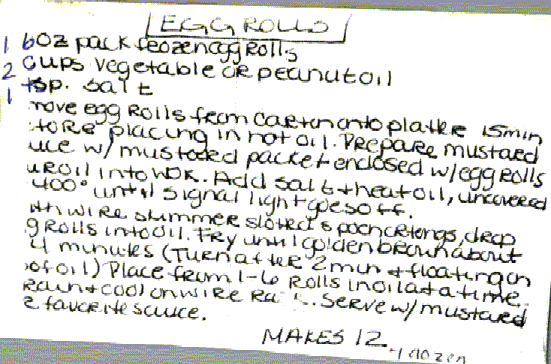 EGG ROLLS
1 6oz pack frozen egg Rolls
2 cups vegetable or peanut oil
1 tsp. salt
move egg Rolls from carton onto platter 15 min
fore placing in hot oil. Prepare mustard
uce w/ mustard packet enclosed w/egg rolls
ur oil into wok. Add salt + heat oil, uncovered
400° until signal light goes off.
ith wire skimmer slotted spoon or tongs, drop
g Rolls into oil. Fry until golden brown about
4 minutes (Turn after 2 min + floating on
of oil) Place from 1-6 Rolls in oil at a time.
rain + cool on wire Serve w/ mustard
r favorite sauce.
MAKES 12
1 dozen